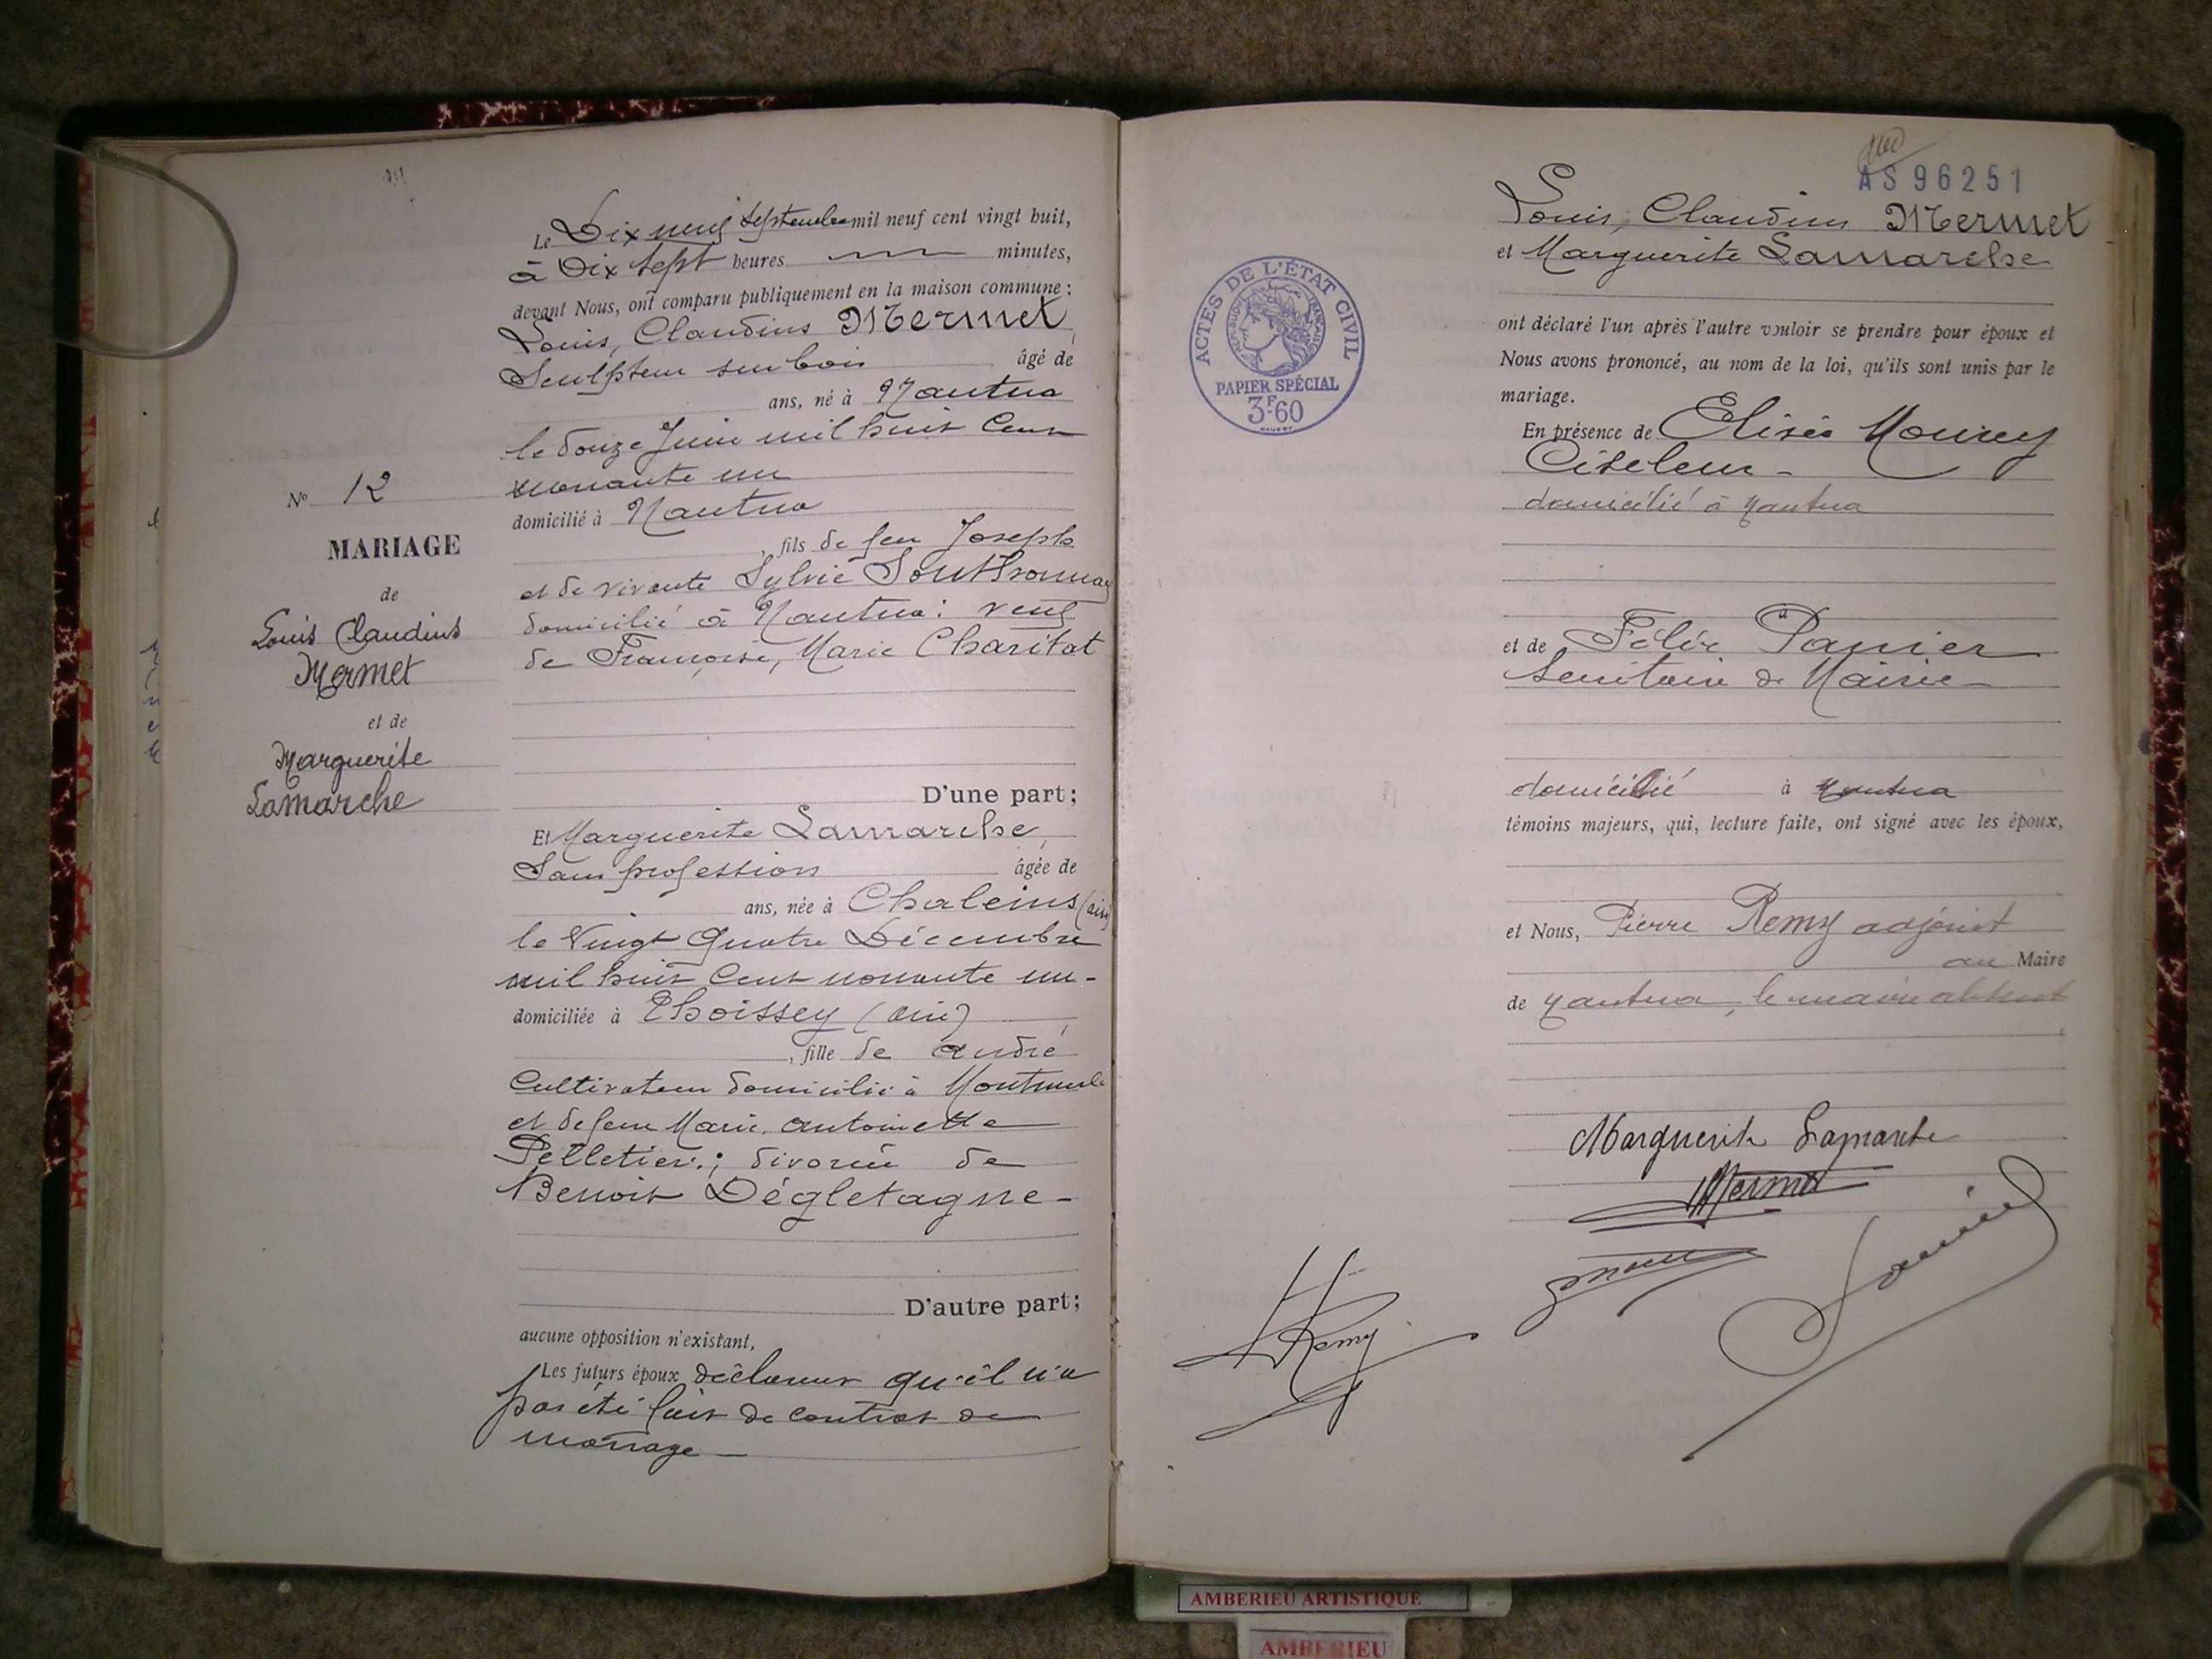 Le Dix neuf Septembre mil neuf cent vingt huit,
à Dix sept heures minutes,
devant Nous, ont comparu publiquement en la maison commune :
Louis, Claudius Mermet,
Sculpteur sur bois âgé de
ans, né à Nantua
le douze Juin mil huit Cent
nonante un
domicilié à Nantua
, fils de feu Joseph
et de vivante Sylvie Southonnay
domicilié à Nantua : veuf
de Françoise, Marie Charitat
D'une part ;
Nº 12
MARIAGE
de
Louis Claudius
Mermet
et de
Marguerite
Lamarche
Et Marguerite Lamarche,
Sans profession âgée de
ans, née à Chaleins (ain)
le Vingt Quatre Décembre
mil huit Cent nonante un -
domiciliée à Thoissey (ain)
, fille de André
Cultivateur domicilié à Montmerle
et de feue Marie Antoinette
Pelletier ; divorcée de
Benoit Dégletagne -
D'autre part ;
aucune opposition n'existant,
Les futurs époux déclarent qu'il n'a
pas été fait de contrat de
mariage -
AS 96251
Louis, Claudius Mermet
et Marguerite Lamarche
ACTES DE L'ÉTAT CIVIL
RÉPUBLIQUE FRANÇAISE
PAPIER SPÉCIAL
3F60
ont déclaré l'un après l'autre vouloir se prendre pour époux et
Nous avons prononcé, au nom de la loi, qu'ils sont unis par le
mariage.
En présence de Elisée Mourey
Ciseleur -
domicilié à Nantua
et de Félix Panier
Secrétaire de Mairie -
domicilié à Nantua
témoins majeurs, qui, lecture faite, ont signé avec les époux,
et Nous, Pierre Remy adjoint
au Maire
de Nantua, le maire absent
Marguerite Lamarche
Mermet
Remy
AMBERIEU ARTISTIQUE
AMBERIEU